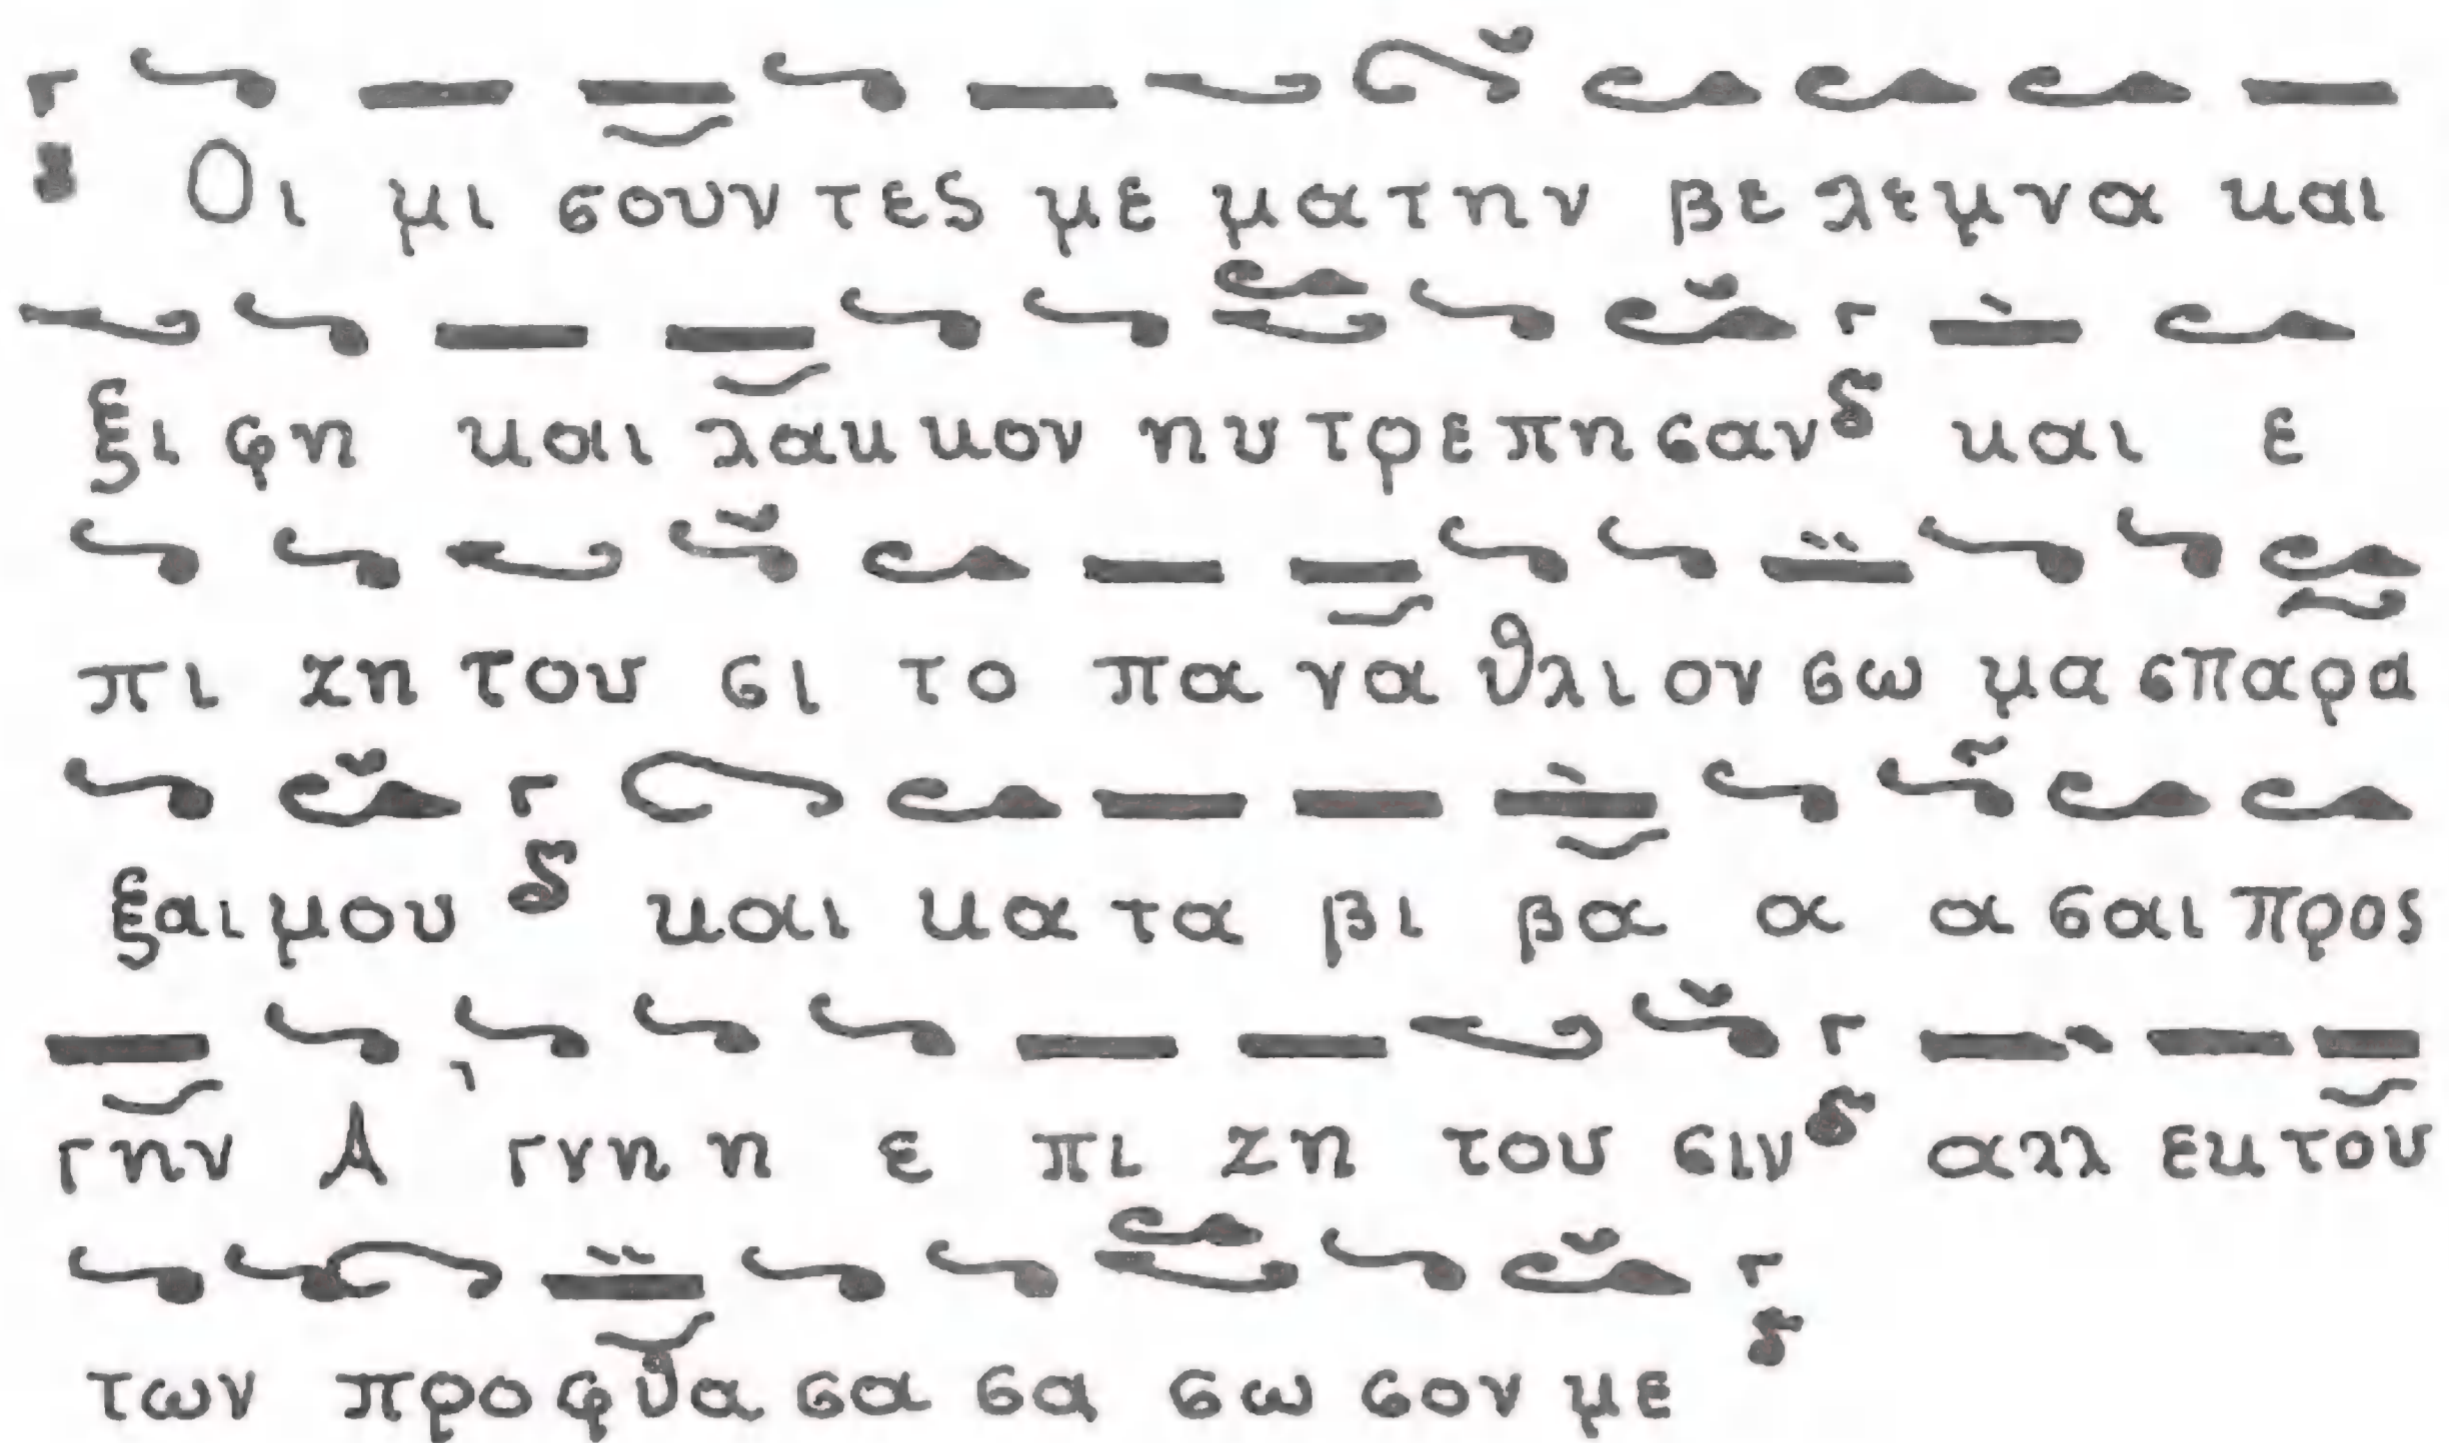 Οι μι σουν τες με μα την βε λεμ να και
ξι φη και λακ κον ηυ τρε πη σαν δ και ε
πι ζη του σι το πα να θλι ον σω μα σπαρα
ξαι μου δ και κα τα βι βα α α σαι προς
γην Α γνη η ε πι ζη του σιν δ αλλ εκ του
των προ φθα σα σα σω σον με δ